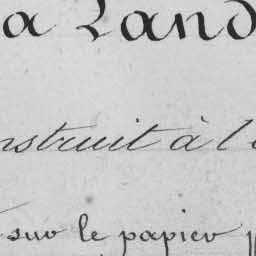 a Land
nstruit à l
sur le papier